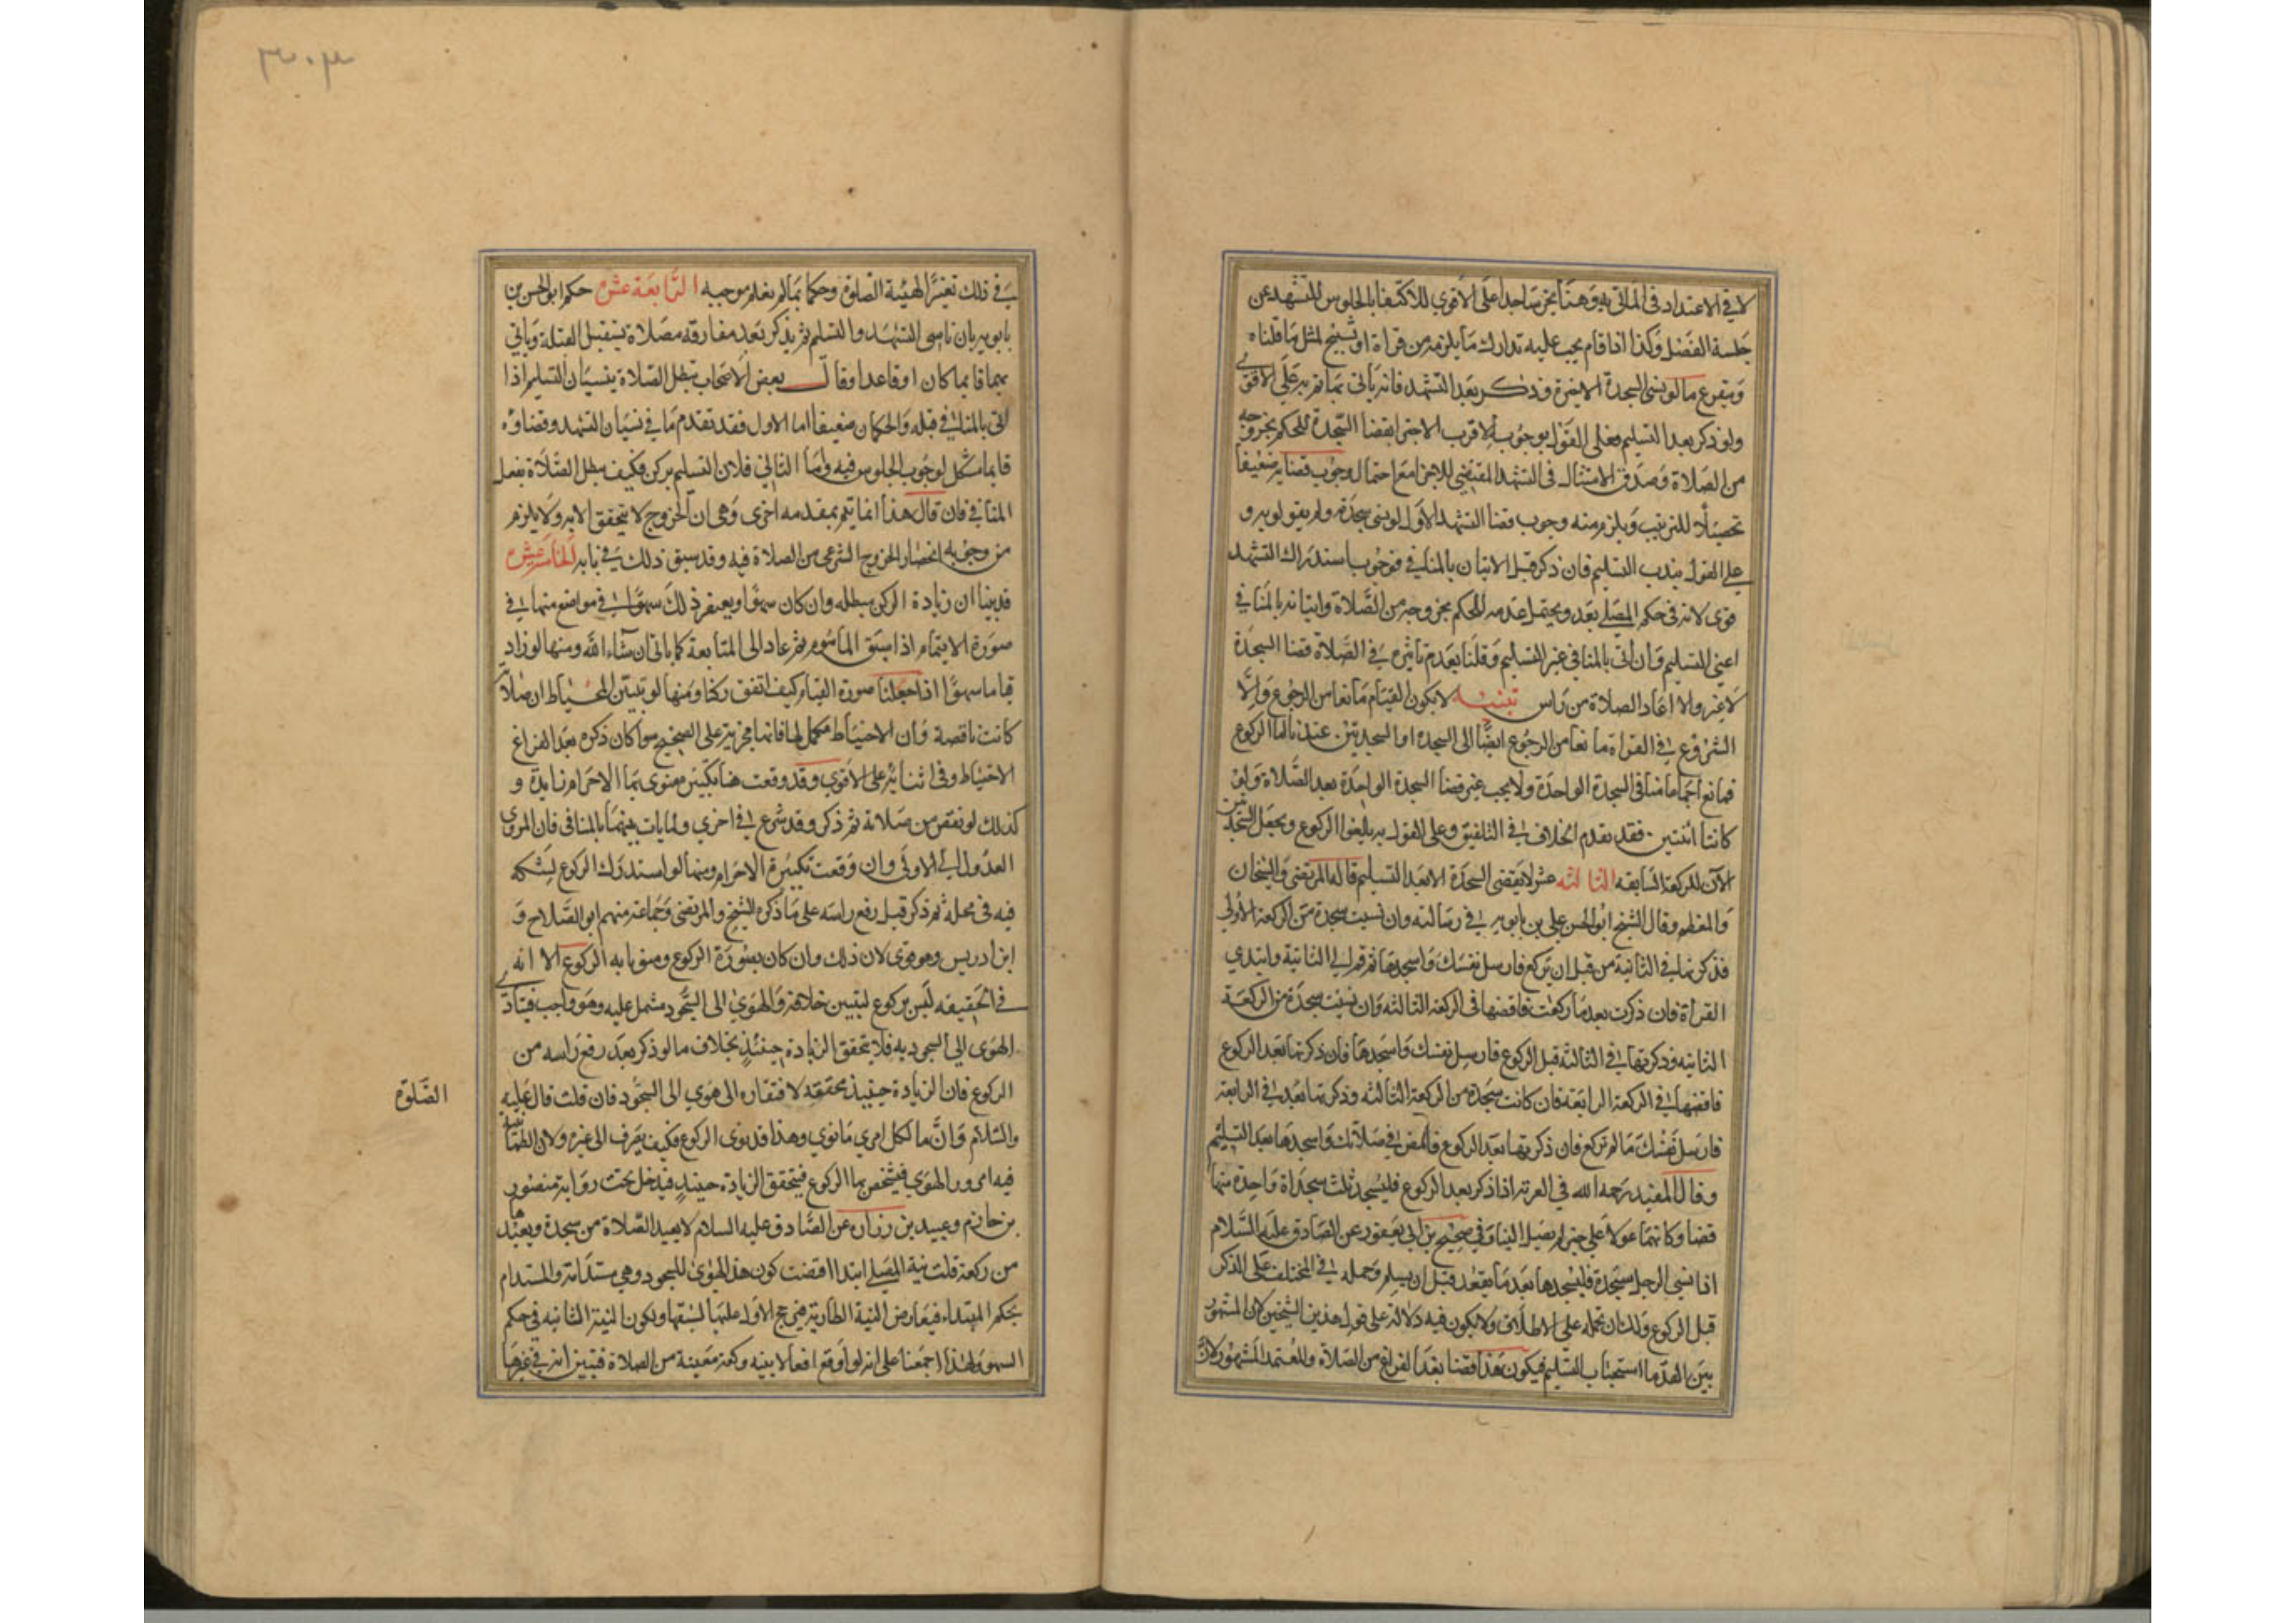 لا في الاعتداد في الماتي به وهنا يخر ساجدا على الاقوي للاكتفا بالجلوس للتشهد عن
جلسة الفصل وكذا اذا قام يجب عليه تدارك ما يلزمه من قراة او تسبيح لمثل ما قلناه
ويتفرع ما لو نسى السجدة الاخيرة وذكر بعد التشهد فانه ياتي بما مر به على الاقوى
ولو ذكر بعد التسليم فعلى القول بوجوبه الاقرب الاجتزا بقضا السجدة للحكم بخروجه
من الصلاة وصدق الامتثال في التشهد المقتضي للاجزا مع احتمال وجوب قضايه ضعيفا
تحصيلا للترتيب ويلزم منه وجوب قضا التشهد الاول لو نسى سجدة ولم يقولو به و
على القول بندب التسليم فان ذكر قبل الاتيان بالمنافي فوجوب استدراك التشهد
قوى لانه في حكم المصلي بعد ويحتمل عدمه للحكم بخروجه من الصلاة واتيانه بالمنافي
اعني التسليم وان أتى بالمنافي غير التسليم وقلنا بعدم تاثيره في الصلاة قضا السجدة
لا غير والا اعاد الصلاة من راس تنبيه لا يكون القيام مانعا من الرجوع والا
الشروع في القراة مانعا من الرجوع ايضا الى السجدة او السجدتين عندنا اما الركوع
فمانع اجماعا منا في السجدة الواحدة ولا يجب غير قضا السجدة الواحدة بعد الصلاة ولو
كانتا اثنتين فقد تقدم الخلاف في التلفيق وعلى القول به يلغوا الركوع ويجعل السجدتين
الآن للركعة السابقه الثالثه عشر لا يقضى السجدة الا بعد التسليم قاله المرتضى والشيخان
والمعظم وقال الشيخ ابو الحسن علي بن بابويه في رسالته وان نسيت سجدة من الركعة الأولى
فذكرتها في الثانية من قبل ان تركع فارسل نفسك واسجدها ثم قم الى الثانية وابتدي
القرأة فان ذكرت بعد ما ركعت فاقضها في الركعة الثالثه وان نسيت سجدة من الركعة
الثانيه وذكرتها في الثالثة قبل الركوع فارسل نفسك واسجدها فان ذكرتها بعد الركوع
فاقضها في الركعة الرابعة فان كانت سجدة من الركعة الثالثه وذكرتها بعد في الرابعة
فارسل نفسك ما لم تركع فان ذكرتها بعد الركوع فامض في صلاتك واسجدها بعد التسليم
وقال المفيد رحمه الله في العزية اذا ذكر بعد الركوع فليسجد ثلث سجداة واحدة منها
قضا وكانهما عولا على خبر لم يصل الينا وفي صحيح بن ابي يعفور عن الصادق عليه السلام
اذا نسي الرجل سجدة فليسجدها بعد ما يقعد قبل ان يسلم وحمله في المختلف على الذكر
قبل الركوع ولك ان تحمله على الاطلاق ولا يكون فيه دلالة على قول هذين الشيخين لان المشهور
بين القدما استحباب التسليم فيكون هذا قضا بعد الفراغ من الصلاة والمعتمد المشهور لان
في ذلك تغيرا لهيئة الصلوة وحكما بما لم يعلم موجبه الرابعة عشره حكم ابو الحسن بن
بابويه بان ناسى التشهد والتسليم ثم يذكر بعد مفارقه مصلاه يستقبل القبلة وياتي
بهما قايما كان او قاعدا وقال بعض الاصحاب تبطل الصلاة بنسيان التسليم اذا
اتى بالمنافي قبله والحكمان ضعيفا اما الاول فقد تقدم ما في نسيان التشهد وقضاؤه
قايما مشكل لوجوب الجلوس فيه واما الثاني فلان التسليم بركن فكيف تبطل الصلاة بفعل
المنافي فان قال هذا انما يتم بمقدمه اخرى وهي ان الخروج لا يتحقق الا به ولا يلزم
من وجوبه انحصار الخروج الشرعي من الصلاة فيه وقد سبق ذلك في بابه الخامس عشره
قد بينا ان زيادة الركن مبطله وان كان سهوا ويعتفر ذلك سهوا في مواضع منها في
صورة الايتمام اذا سبق الماموم ثم عاد الى المتابعة كما ياتي ان شاء الله ومنها لو زاد
قياما سهوا اذا جعلنا صورة القيام كيف اتفق ركنا ومنها لو تبين للمحتاط ان صلاته
كانت ناقصة وان الاحتياط مكمل لها فانها مجزية على الصحيح سوا كان ذكره بعد الفراغ
الاحتياط وفي اثنائه على الاقوى وقد وقعت هنا تكبيره منوى بها الاحرام زايدة و
كذلك لو نقص من صلاته ثم ذكر وقد شرع في اخرى ولما يات بينهما بالمنافى فان المروى
العدول الى الاولى وان وقعت تكبيرة الاحرام ومنها لو استدرك الركوع لشكه
فيه في محله ثم ذكر قبل رفع راسه على ما ذكره الشيخ والمرتضى وجماعة منهم ابو الصلاح و
ابن ادريس وهو قوى لان ذلك وان كان بصورة الركوع ومنويا به الركوع الا انه
في الحقيقه ليس بركوع لتبين خلافه والهوي الى السجود مشتمل عليه وهو واجب فيتادى
الهوى الى السجود به فلا يتحقق الزيادة حينئذ بخلاف ما لو ذكر بعد رفع راسه من
الركوع فان الزيادة حينيذ محققه لافتقاره الى هوى الى السجود فان قلت قال عليه
الصلوة
والسلام وانما لكل امري ما نوي وهذا قد نوى الركوع فكيف يصرف الى غيره ولان الطمانينه
فيه امر ورا الهوي فيتمخص بها الركوع فيتحقق الزيادة حينيذ فيدخل تحت رواية منصور
بن حازم وعبيد بن زراره عن الصادق عليه السلام لا يعيد الصلاة من سجدة ويعيدها
من ركعة قلت نية المصلي ابتدا اقتضت كون هذا الهوى للسجود وهي مستدامة والمستدام
بحكم المبتداء فيعارض النية الطارية فيرجح الاول عليها لسبقها ولكون النية الثانيه في حكم
السهو ولهذا اجمعنا على انه لو اوقع افعالا بنيه ركعة معينة من الصلاة فتبين انه في غيرها